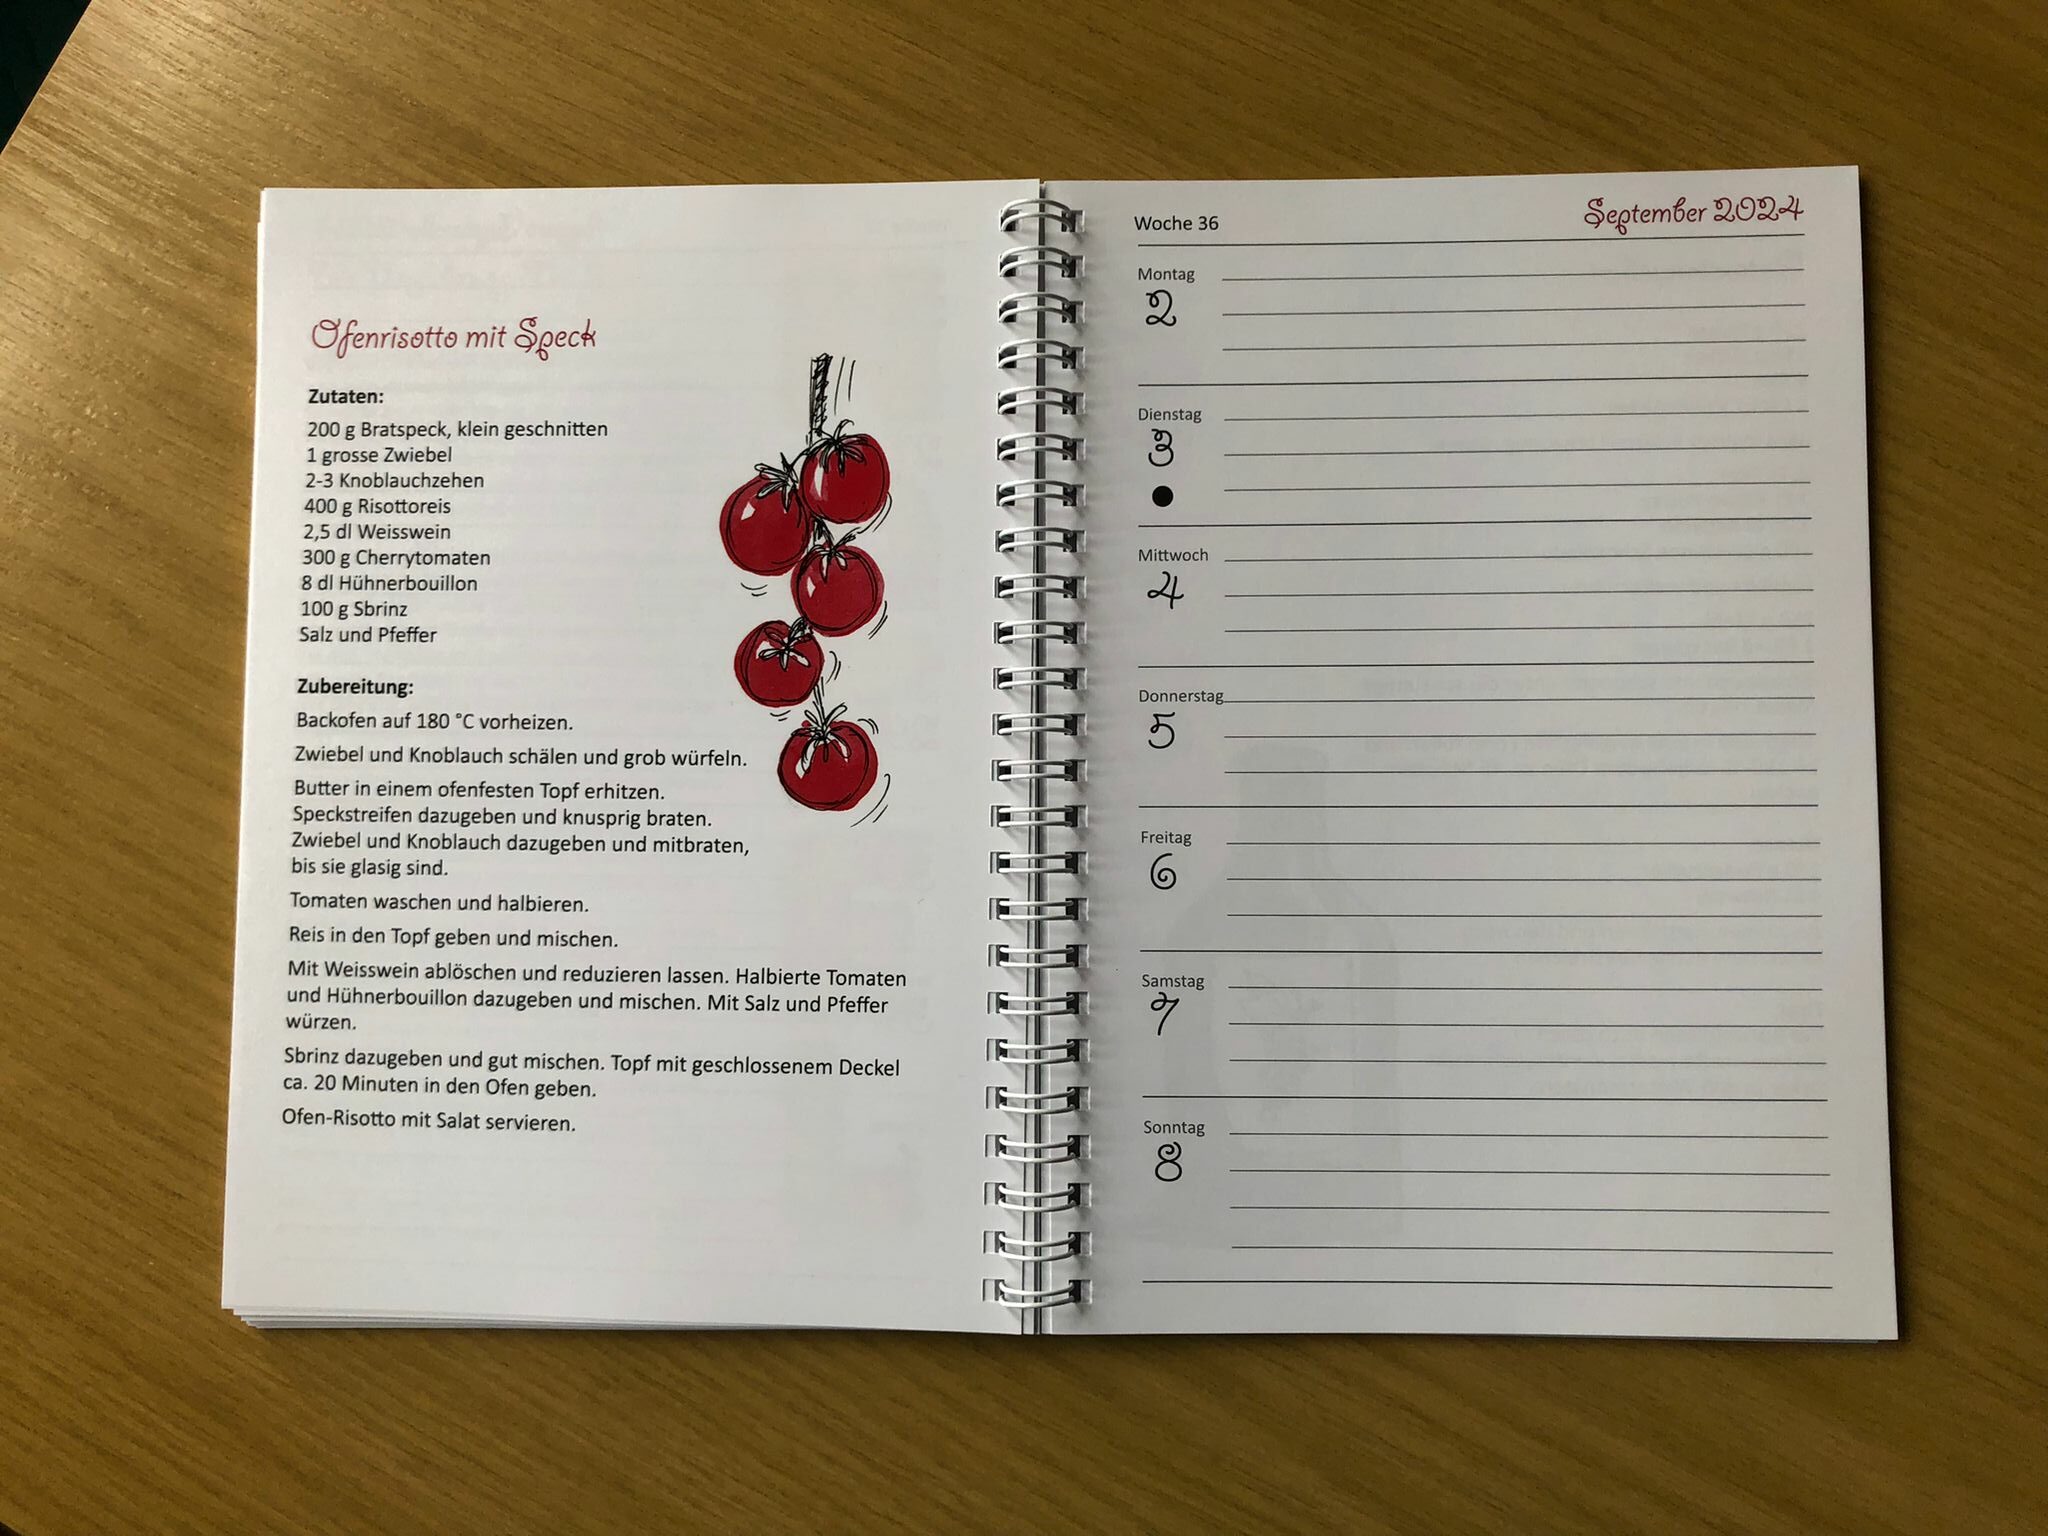 Ofenrisotto mit Speck
Zutaten:
200 g Bratspeck, klein geschnitten
1 grosse Zwiebel
2-3 Knoblauchzehen
400 g Risottoreis
2,5 dl Weisswein
300 g Cherrytomaten
8 dl Hühnerbouillon
100 g Sbrinz
Salz und Pfeffer
Zubereitung:
Backofen auf 180 °C vorheizen.
Zwiebel und Knoblauch schälen und grob würfeln.
Butter in einem ofenfesten Topf erhitzen.
Speckstreifen dazugeben und knusprig braten.
Zwiebel und Knoblauch dazugeben und mitbraten,
bis sie glasig sind.
Tomaten waschen und halbieren.
Reis in den Topf geben und mischen.
Mit Weisswein ablöschen und reduzieren lassen. Halbierte Tomaten
und Hühnerbouillon dazugeben und mischen. Mit Salz und Pfeffer
würzen.
Sbrinz dazugeben und gut mischen. Topf mit geschlossenem Deckel
ca. 20 Minuten in den Ofen geben.
Ofen-Risotto mit Salat servieren.
Woche 36
September 2024
Montag
2
Dienstag
3
Mittwoch
4
Donnerstag
5
Freitag
6
Samstag
7
Sonntag
8